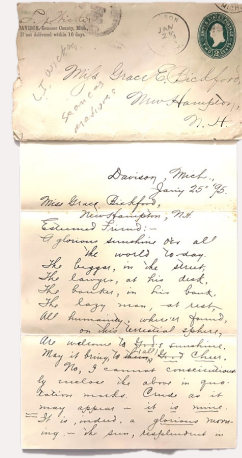 DAVISON, Genesee County, Mich.
If not delivered within 10 days,
JAN
Miss Grace E. Bickford,
New Hampton,
N. H.
Davison, Mich.,
Jan'y 25th '95.
Miss Grace Bickford,
New Hampton, N.H.
Esteemed Friend:-
A glorious sunshine o'er all
the world to-day.
The beggar, in the street,
The lawyer, at his desk,
The banker, in his bank.
The lazy man, at rest,
All humanity, where'er found,
on this terrestial sphere,
Are welcome to God's sunshine,
May it bring, to them all, Good Cheer.
No, I cannot conscientious-
ly inclose the above in quo-
tation marks. Crude as it
may appear - it is mine.
It is, indeed, a glorious morn-
ing - the sun, resplendent in